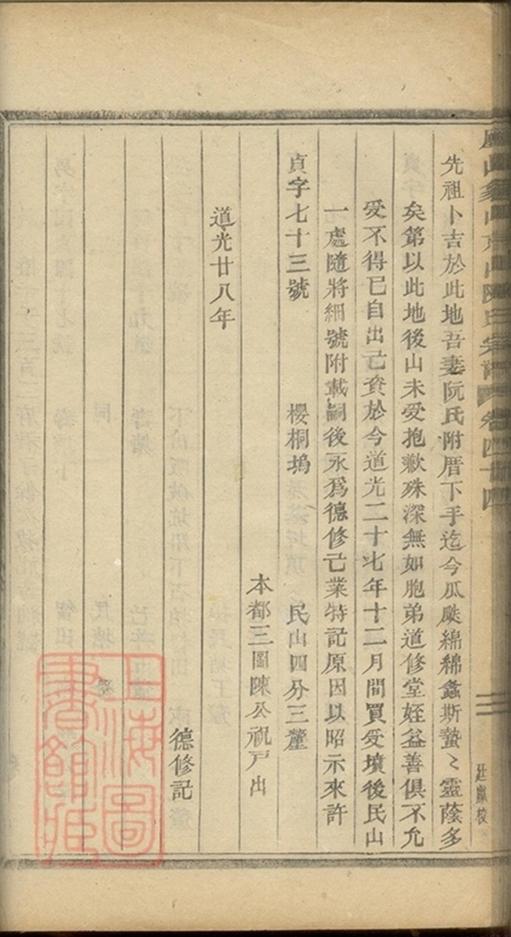 陳氏宗譜 卷四十四
三
先祖卜吉於此地吾妻阮氏附厝下手迄今瓜瓞綿綿螽斯蟄〻靈蔭多
矣第以此地後山未受抱歉殊深無如胞弟道修堂姪益善俱不允
受不得已自出己資於今道光二十七年十二月間買受墳後民山
一處隨將細號附載嗣後永爲德修己業特記原因以昭示來許
貞字七十三號 櫻桐塢 民山四分三釐
本都三圖陳公祝戶出
道光廿八年
德修記
上海圖書館藏